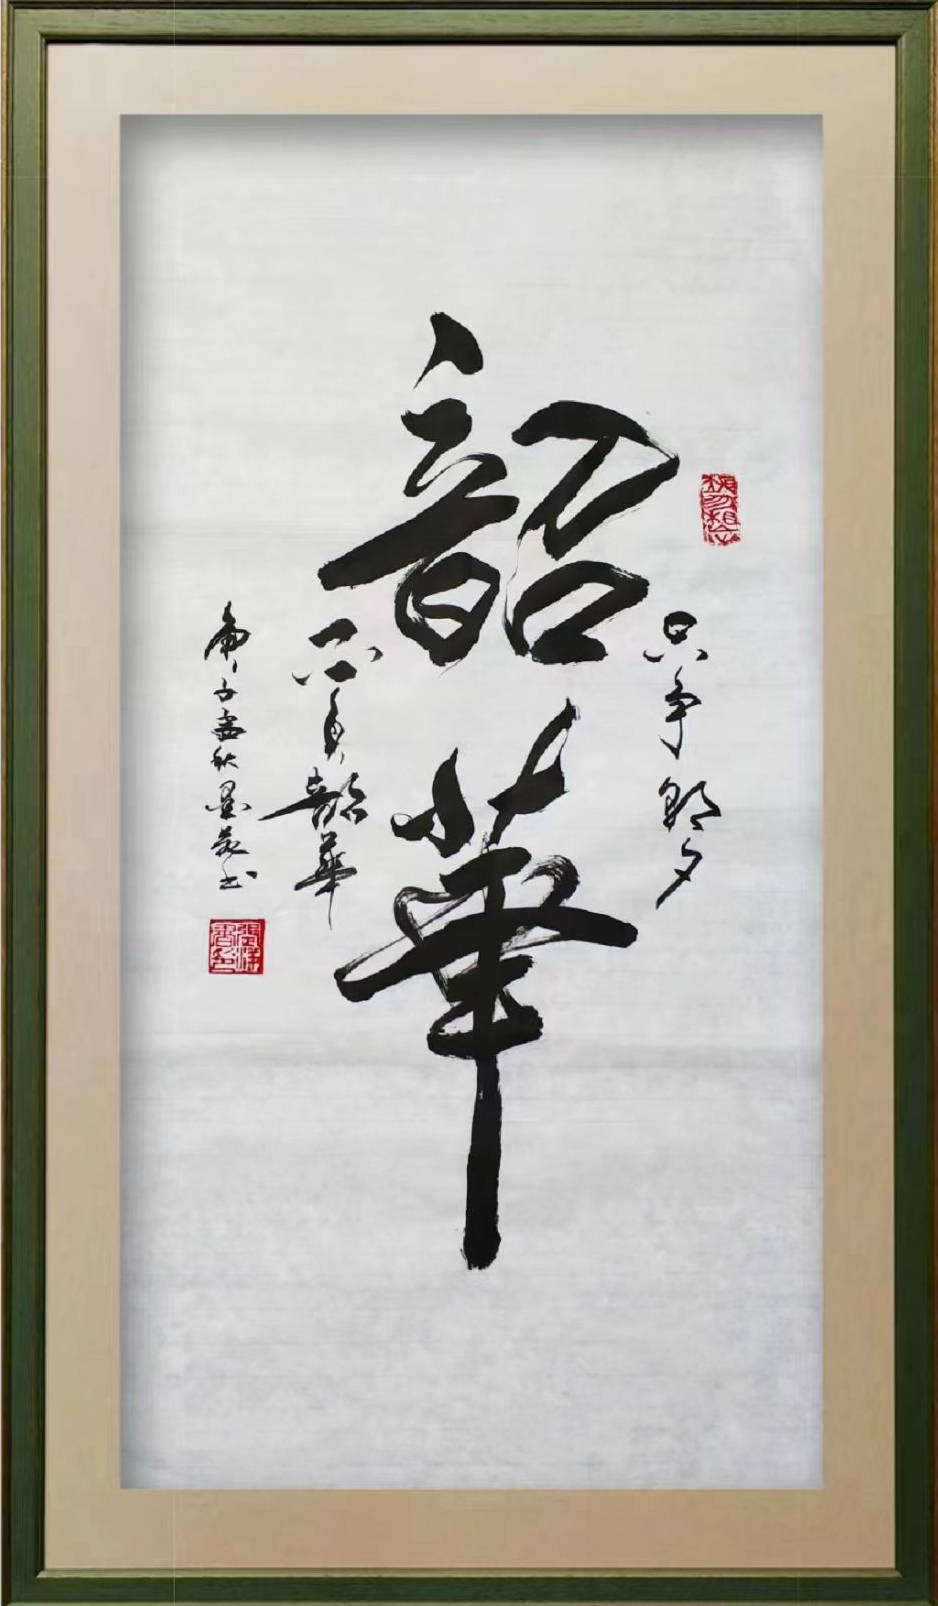 韶華
只争朝夕
不負韶華
庚子孟秋墨苑书